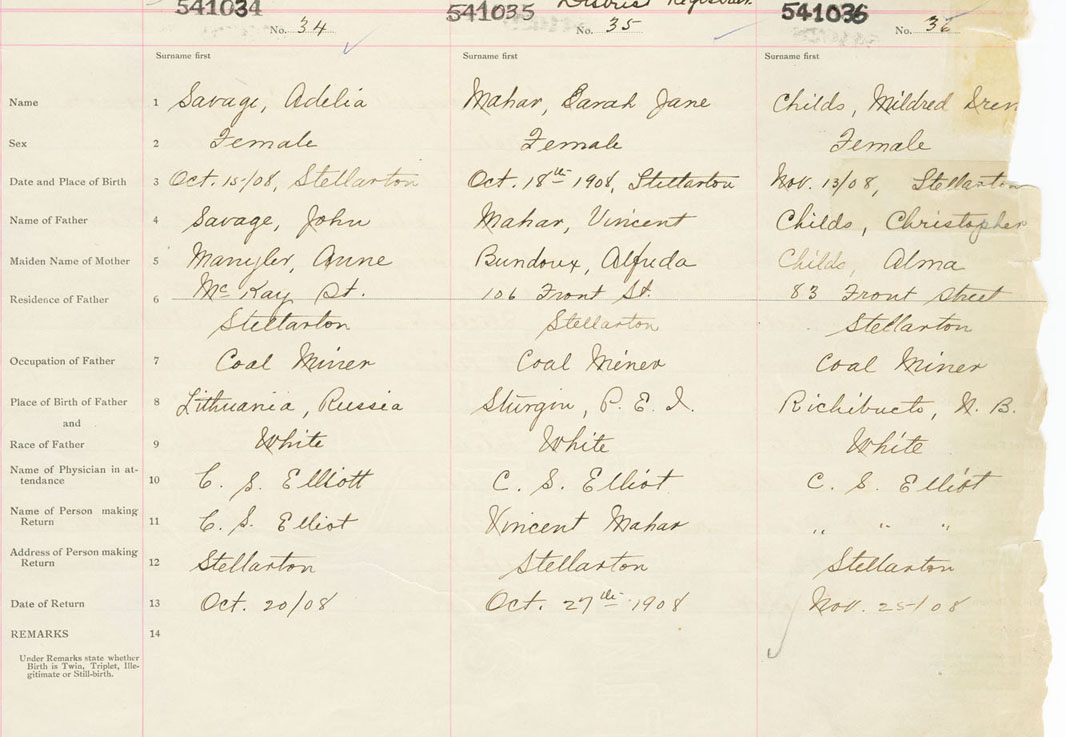 541034 541035 District Registrar. 541036
No. 34 No. 35 No. 36
Surname first Surname first Surname first
Name 1 Savage, Adelia Mahar, Sarah Jane Childs, Mildred
Sex 2 Female Female Female
Date and Place of Birth 3 Oct. 15/08, Stellarton Oct. 18th 1908, Stellarton Nov. 13/08, Stellarton
Name of Father 4 Savage, John Mahar, Vincent Childs, Christopher
Maiden Name of Mother 5 Anne Alfreda Childs, Alma
Residence of Father 6 Mc Kay St. 106 Front St. 83 Front Street
Stellarton Stellarton Stellarton
Occupation of Father 7 Coal Miner Coal Miner Coal Miner
Place of Birth of Father 8 Lithuania, Russia Sturgin, P. E. I. Richibucto, N. B.
and
Race of Father 9 White White White
Name of Physician in at-
tendance 10 C. S. Elliott C. S. Elliot C. S. Elliot
Name of Person making
Return 11 C. S. Elliot Vincent Mahar " " "
Address of Person making
Return 12 Stellarton Stellarton Stellarton
Date of Return 13 Oct. 20/08 Oct. 27th 1908 Nov. 25/08
REMARKS 14
Under Remarks state whether
Birth is Twin, Triplet, Ille-
gitimate or Still-birth.